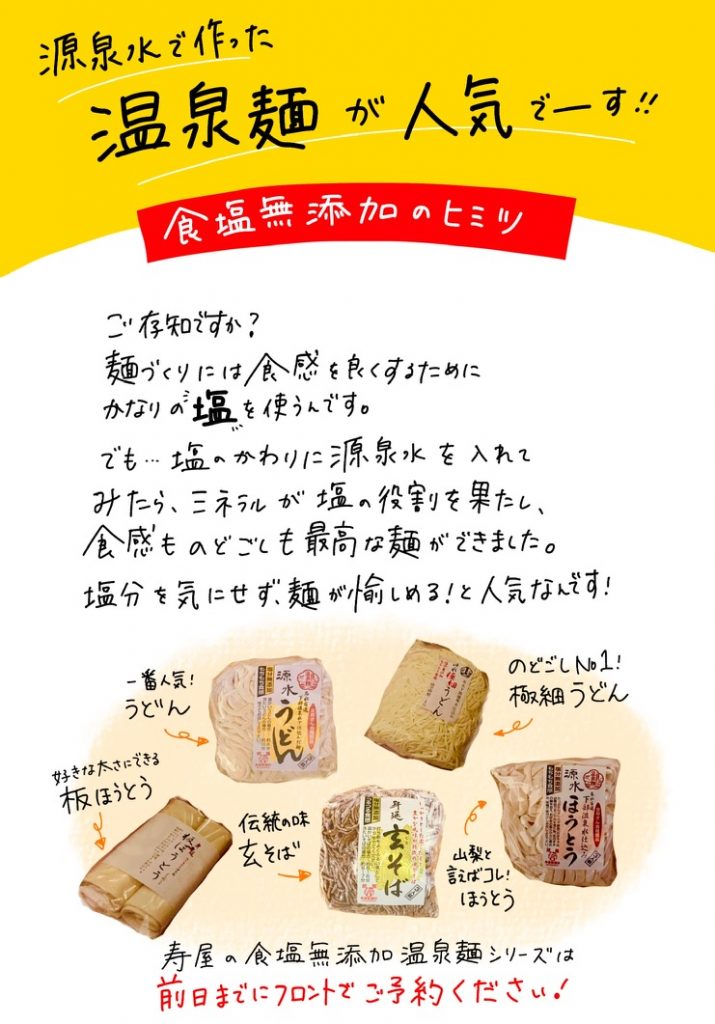 源泉水で作った
温泉麺が人気でーす!!
食塩無添加のヒミツ
ご存知ですか?
麺づくりには食感を良くするために
かなりの塩を使うんです。
でも…塩のかわりに源泉水を入れて
みたら、ミネラルが塩の役割を果たし、
食感ものどごしも最高な麺ができました。
塩分を気にせず、麺が愉しめる!と人気なんです!
一番人気!
うどん
源水
うどん
のどごしNo1!
極細うどん
好きな太さにできる
板ほうとう
板ほうとう
伝統の味
玄そば
玄そば
山梨と
言えばコレ!
ほうとう
源水
ほうとう
下部温泉水仕込み
寿屋の食塩無添加温泉麺シリーズは
前日までにフロントでご予約ください!